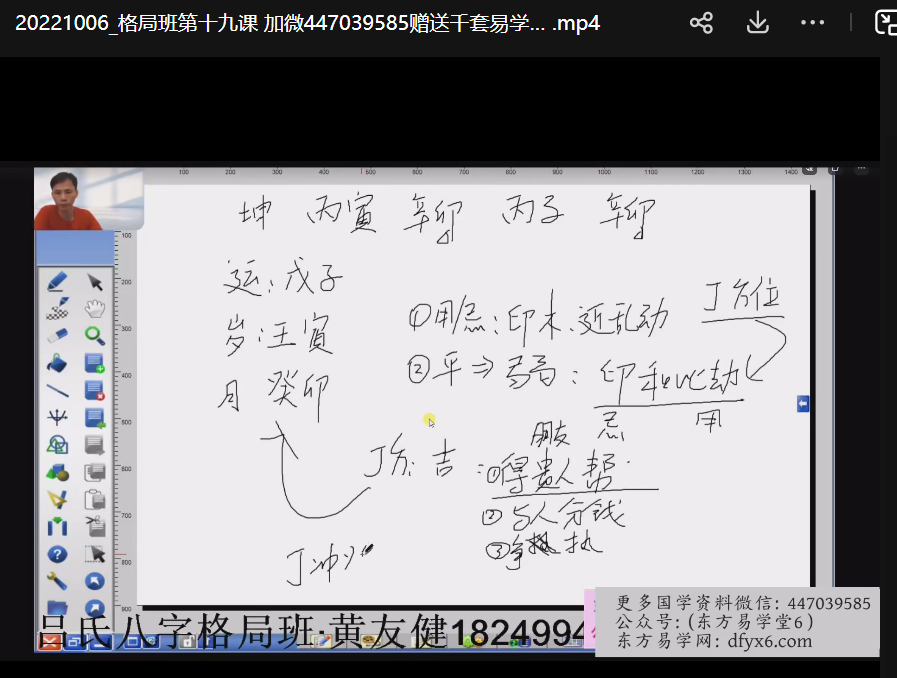 20221006_格局班第十九课 加微447039585赠送千套易学... .mp4
100 200 300 400 500 600 700 800 900 1000 1100 1200 1300 1400
坤 丙寅 辛卯 丙子 辛卯
运：戊子
岁：壬寅
月 癸卯
①用忌：印木、近乱动
J方位
②平⇒弱：印和比劫
忌 用
朋友
J方：吉：①得贵人帮
②与人分钱
③争执 执
J冲
100
200
300
400
500
600
700
800
900
吕氏八字格局班·黄友健1824994
更多国学资料微信: 447039585
公众号: (东方易学堂6)
东方易学网: dfyx6.com